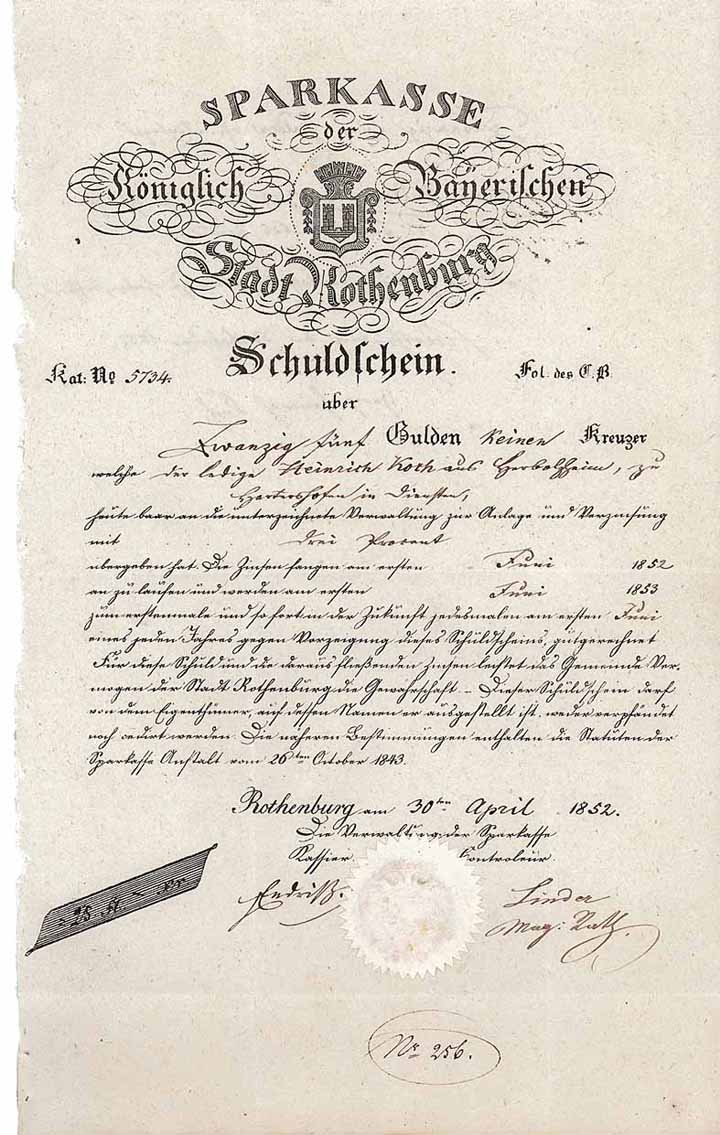 SPARKASSE
der
Königlich Bayerischen
Stadt Rothenburg
Schuldschein.
Kat: No 5734. Fol. des C. B.
über
Zwanzig fünf Gulden keinen Kreuzer
welche der ledige Heinrich Koch aus Herbolzheim, zu
Hartershofen in Diensten,
heute baar an die unterzeichnete Verwaltung zur Anlage und Verzinsung
mit drei Procent
übergeben hat. Die Zinsen fangen am ersten Juni 1852
an zu laufen und werden am ersten Juni 1853
zum erstenmale und so fort in der Zukunft jedesmalen am ersten Juni
eines jeden Jahres gegen Vorzeigung dieses Schuldscheins, gutgerechnet
Für diese Schuld und die daraus fließenden Zinsen leistet das Gemeinde Ver-
mögen der Stadt Rothenburg die Gewährschaft. – Dieser Schuldschein darf
von dem Eigenthümer, auf dessen Namen er ausgestellt ist, weder verpfändet
noch cedirt werden. Die näheren Bestimmungen enthalten die Statuten der
Sparkasse Anstalt vom 26ten October 1843.
Rothenburg am 30ten April 1852.
Die Verwaltung der Sparkasse
Kassier Controleur
Endriß. Linder
Mag: Rath.
25 fl. – Kr.
Nr 256.